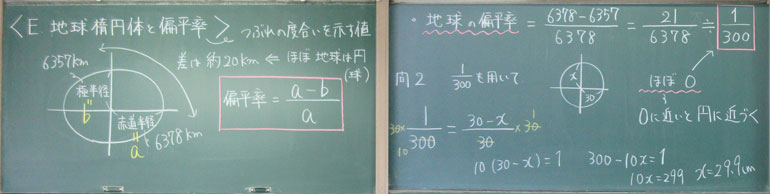 〈E 地球楕円体と偏平率〉 つぶれの度合いを示す値
差は約20km ← ほぼ地球は円(球)
6357km
極半径
b
赤道半径
a
6378km
偏平率 = a-b / a
・地球の偏平率 = 6378-6357 / 6378 = 21 / 6378 ≒ 1 / 300
ほぼ 0
0に近いと円に近づく
問2 1/300 を用いて
x
30
30× 1 / 300 = 30-x / 30 ×30
10
10(30-x)=1 300-10x=1
10x=299 x=29.9cm